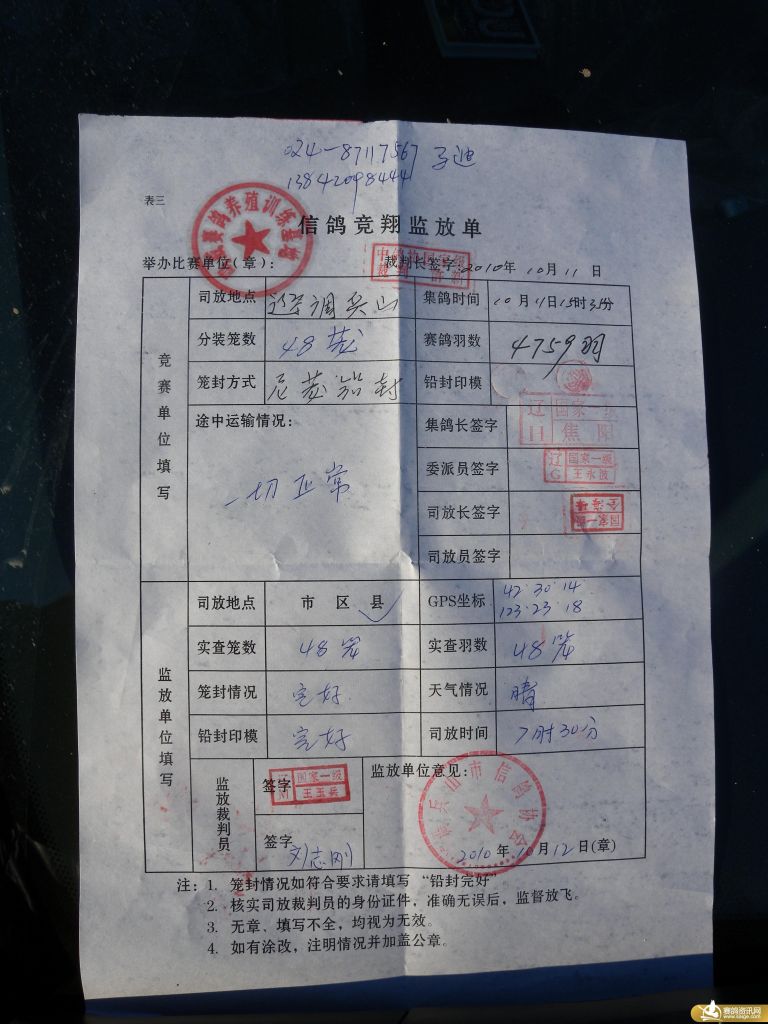 024-87117567
13842098444
表三
信鸽竞翔监放单
举办比赛单位(章): 裁判长签字: 2010年 10月 11 日
竞赛单位填写
司放地点 集鸽时间 10月11日15时35分
分装笼数 48 赛鸽羽数 4759羽
笼封方式 铅封 铅封印模
途中运输情况: 一切正常
集鸽长签字 辽H 国家一级 焦阳
委派员签字 辽G 国家一级 王永波
司放长签字 国家一级
司放员签字
监放单位填写
司放地点 市 区 县 GPS坐标 42·30·14
123·23·18
实查笼数 48 实查羽数 48
笼封情况 完好 天气情况 晴
铅封印模 完好 司放时间 7时30分
监放裁判员
签字 辽M 国家一级 王玉兵
签字 刘志刚
监放单位意见:
兵山市信鸽协会
2010年10月12日(章)
注: 1. 笼封情况如符合要求请填写 “铅封完好”
2. 核实司放裁判员的身份证件，准确无误后，监督放飞。
3. 无章、填写不全，均视为无效。
4. 如有涂改，注明情况并加盖公章。
赛鸽资讯网